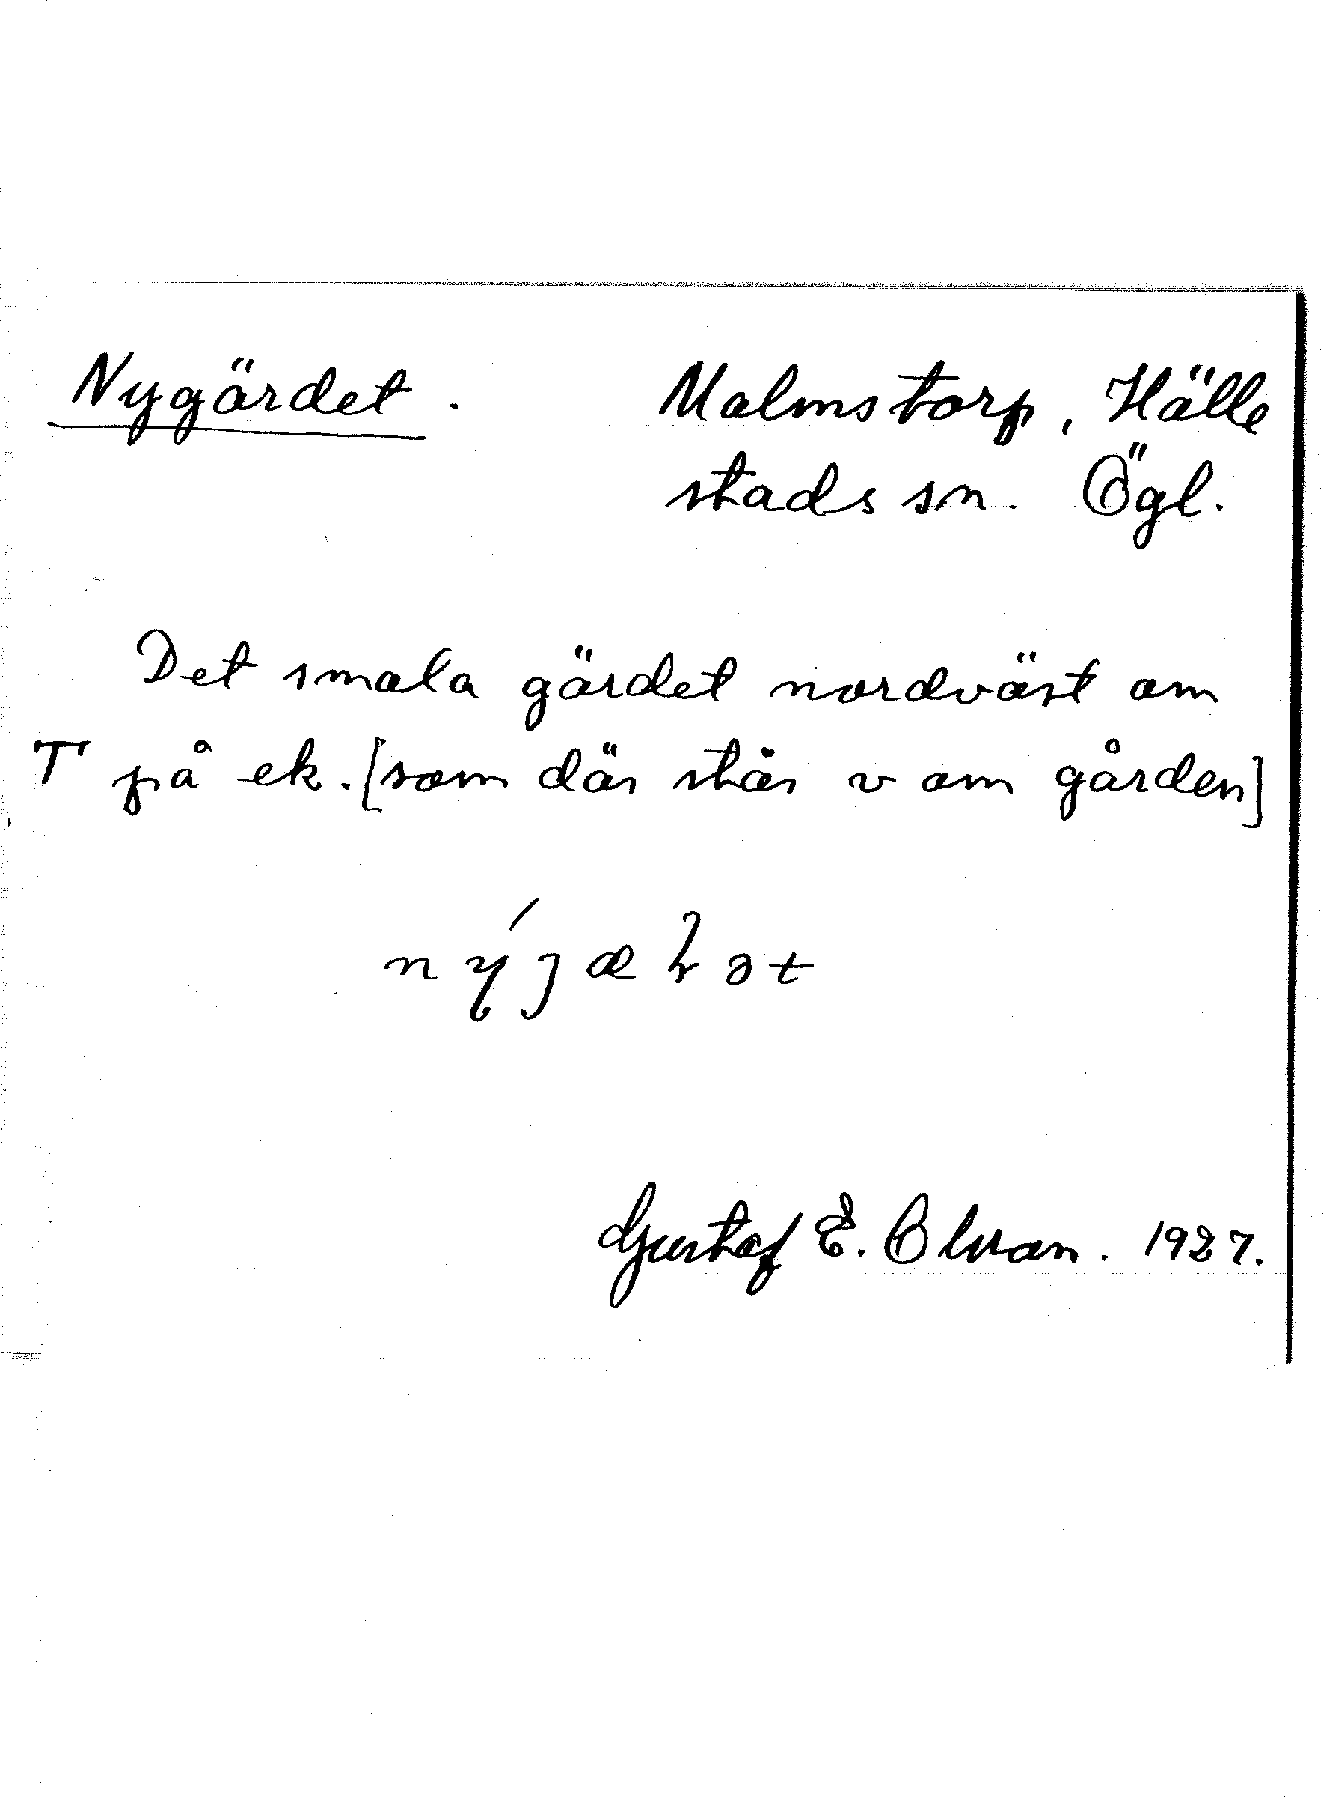 Nygärdet. Malmstorp, Hälle
stads sn. Ögl.
Det smala gärdet nordväst om
T på ek. [som där står v om gården]
Gustaf E. Olsson. 1927.